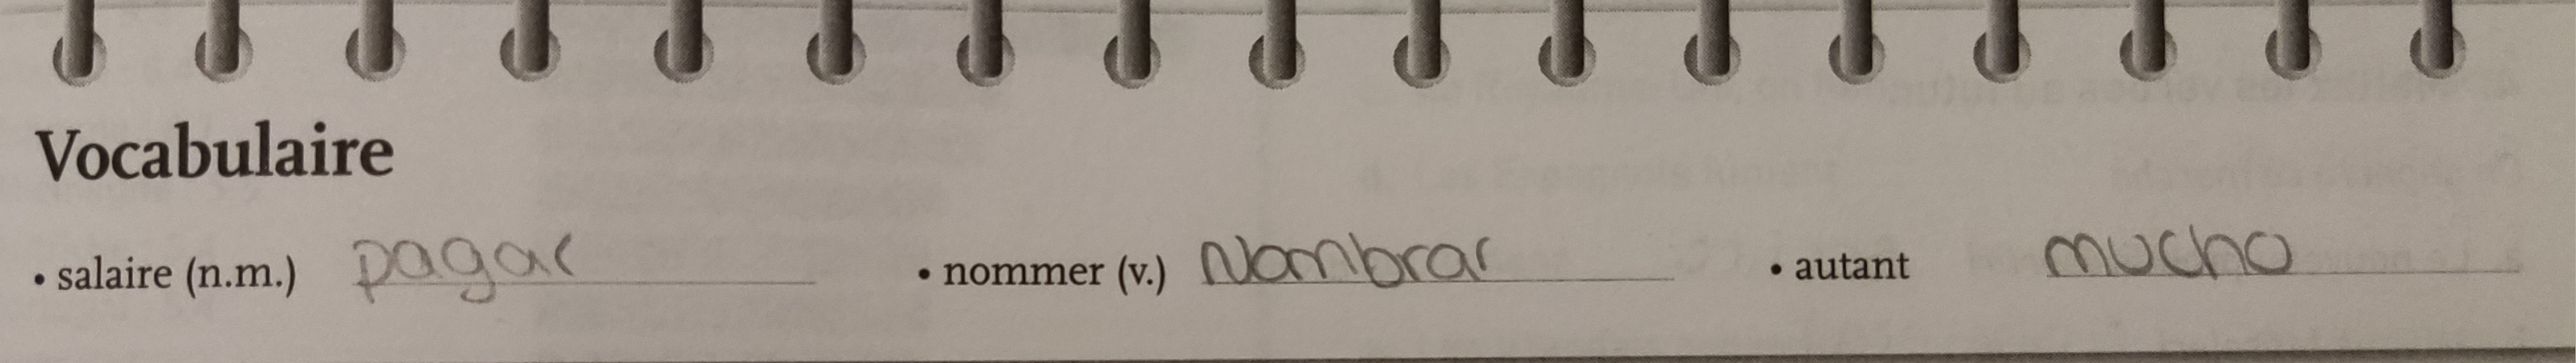 Vocabulaire
• salaire (n.m.) pagar • nommer (v.) Nombrar • autant mucho